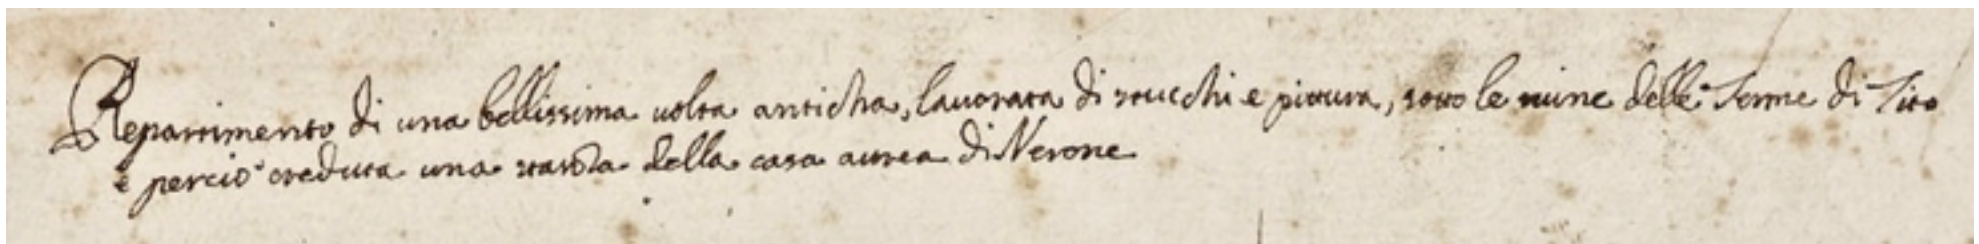 Repartimento di una bellissima uolta anticha, lauorata di stucchi e pittura, sotto le ruine delle Terme di Tito
e perciò creduta una stanza della casa aurea di Nerone